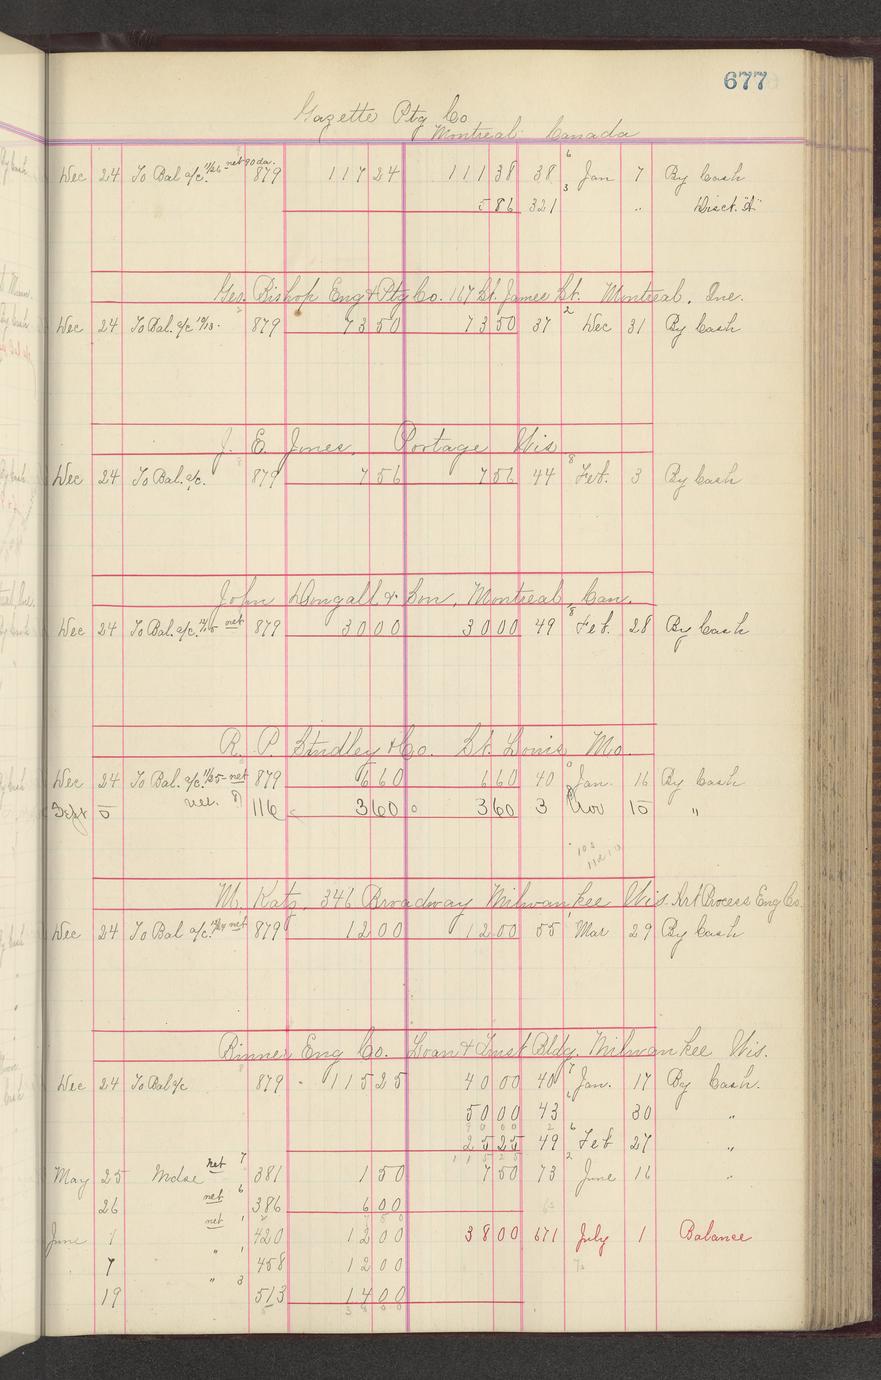 677
Gazette Ptg Co
Montreal Canada
Dec 24 To Bal a/c. 11/26 net 90 da. 879 117 24 111 38 38 6 Jan 7 By Cash
5 86 321 3 " Disct. "A"
Geo. Bishop Eng & Ptg Co. 167 St. James St. Montreal, Que.
Dec 24 To Bal. a/c 10/13. 879 73 50 73 50 37 2 Dec 31 By Cash
J. E. Jones, Portage Wis
Dec 24 To Bal. a/c. 879 7 56 7 56 44 8 Feb. 3 By Cash
John Dougall & Son, Montreal, Can.
Dec 24 To Bal. a/c. net 879 30 00 30 00 49 8 Feb. 28 By Cash
R. P. Studley & Co. St. Louis Mo.
Dec 24 To Bal. a/c. 11/25 net 879 6 60 6 60 40 Jan. 16 By Cash
Sept 5 116 3 60 3 60 3 Nov 15 "
M. Katz, 346 Broadway Milwaukee Wis. Art Process Eng Co.
Dec 24 To Bal a/c. net 879 12 00 12 00 55 1 Mar 29 By Cash
Binner Eng Co. Loan & Trust Bldg. Milwaukee Wis.
Dec 24 To Bal a/c 879 115 25 40 00 40 7 Jan. 17 By Cash.
50 00 43 30 "
90 00
25 25 49 6 Feb 27 "
115 25
May 25 Mdse net 7 381 1 50 7 50 73 2 June 16 "
26 net 6 386 6 00
7 50
June 1 net 1 420 12 00 38 00 671 July 1 Balance
7 " 1 458 12 00
19 " 3 513 14 00